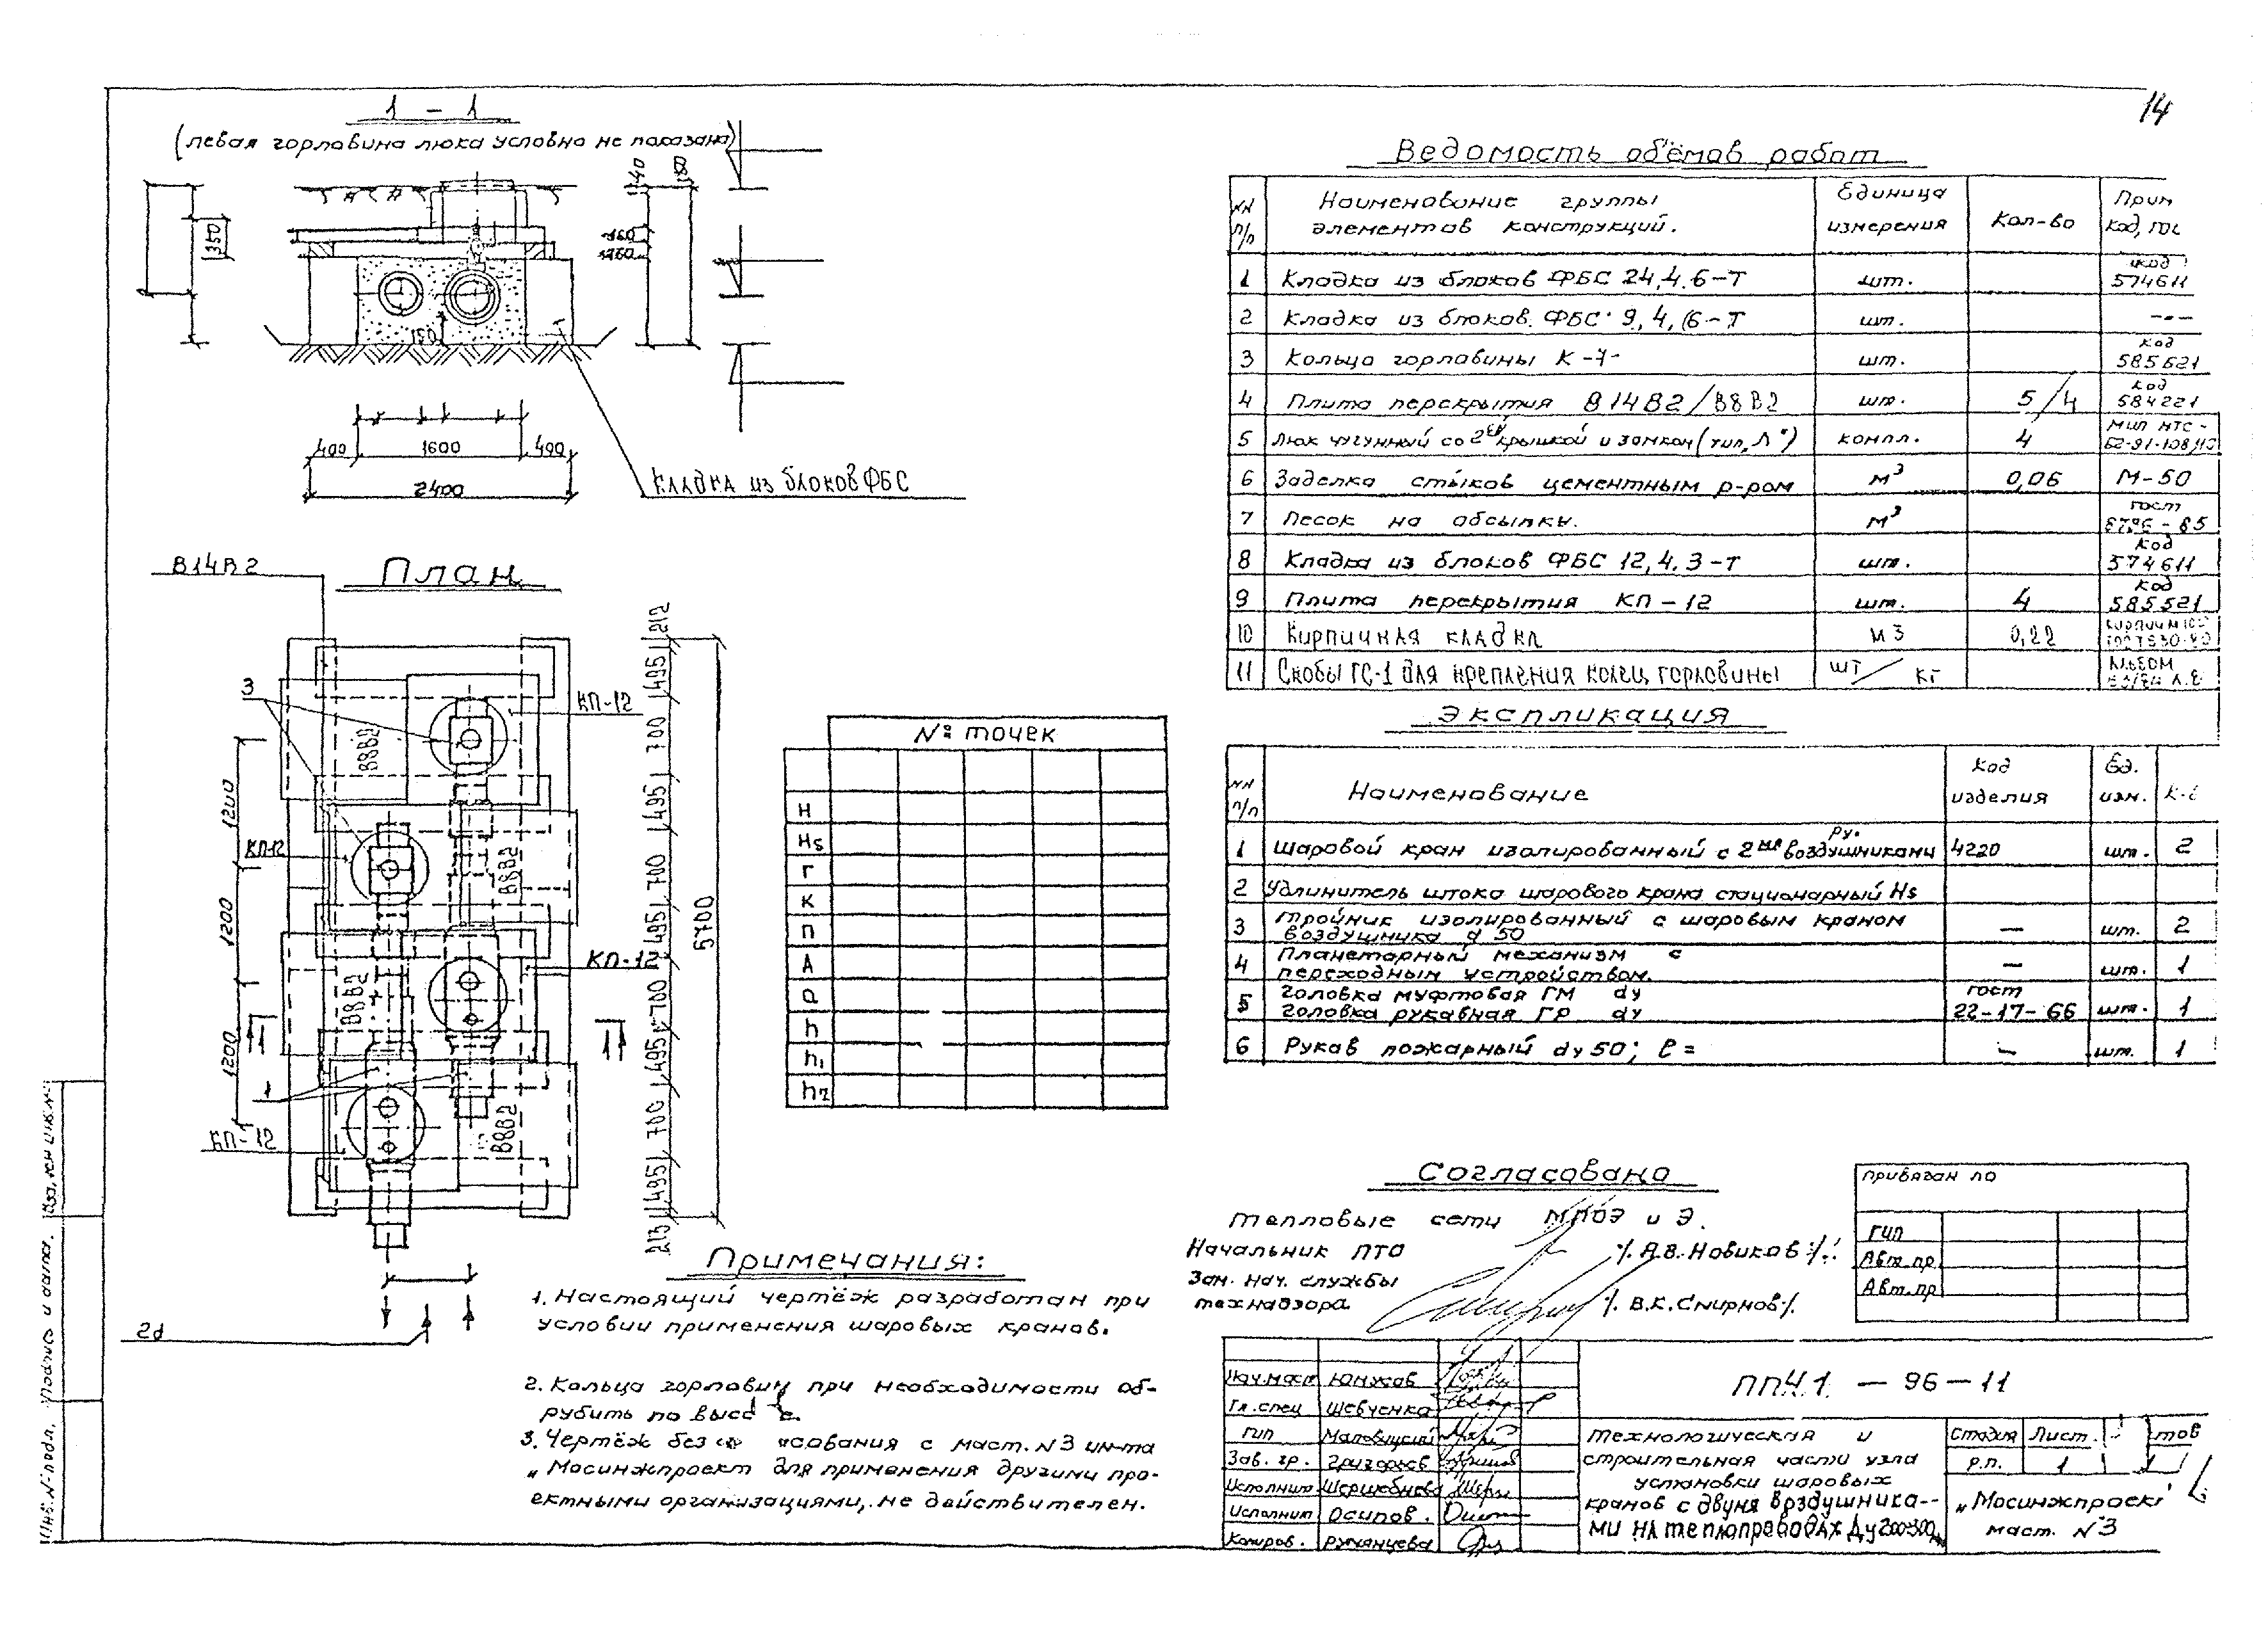 14
1 – 1
(левая горловина люка условно не показана)
140
180
350
160
150
400 1600 400
2400
Кладка из блоков ФБС
План
В14В2
3
КП-12
В8В2
КП-12
В8В2
КП-12
В8В2
КП-12
В8В2
1200
1200
1200
1
1 1
212 495 700 495 700 495 700 495 700 495 213
5700
2d
№ точек
H
Hs
Г
К
П
А
a
h
h1
h2
Ведомость объёмов работ
NN п/п
Наименование группы элементов конструкций.
Единица измерения
Кол-во
Прим
код,
1 Кладка из блоков ФБС 24.4.6-Т шт. код 574611
2 Кладка из блоков ФБС 9.4.6-Т шт. ---
3 Кольца горловины К-7- шт. код 585521
4 Плита перекрытия В14В2/В8В2 шт. 5/4 код 584221
5 Люк чугунный со 2ой крышкой и замком (тип „Л") компл. 4
6 Заделка стыков цементным р-ром м3 0,06 М-50
7 Песок на обсыпку. м3 гост
8 Кладка из блоков ФБС 12.4.3-Т шт. Код 574611
9 Плита перекрытия КП-12 шт. 4 Код 585521
10 Кирпичная кладка м3 0,22
11 Скобы ГС-1 для крепления колец горловины шт/кг Альбом
Экспликация
NN п/п
Наименование
Код изделия
Ед. изм.
1 Шаровой кран изолированный с 2мя воздушниками Ру. 4220 шт. 2
2 Удлинитель штока шарового крана стационарный Hs
3 Тройник изолированный с шаровым краном воздушника d 50 — шт. 2
4 Планетарный механизм с переходным устройством. — шт. 1
5 Головка муфтовая ГМ dу
Головка рукавная ГР dу
гост 22-17-66 шт. 1
6 Рукав пожарный dу 50; ℓ = — шт. 1
Согласовано
Тепловые сети МПОЭ и Э.
Начальник ПТО /. А.В. Новиков /.
Зам. нач. службы
технадзора /. В.К. Смирнов /.
Привязан по
ГИП
Авт. пр
Авт. пр
Примечания:
1. Настоящий чертёж разработан при
условии применения шаровых кранов.
2. Кольца горловин при необходимости об-
рубить по
3. Чертёж без с маст. N3 ин-та
„Мосинжпроект для применения другими про-
ектными организациями, не действителен.
Нач.маст Юнжов
Гл. спец Шевченко
ГИП
Зав. гр. Григорьев
Исполнит
Исполнит Осипов.
Копиров. Румянцева
ПП41 – 96 – 11
Технологическая и
строительная части узла
установки шаровых
кранов с двумя воздушника-
ми на теплопроводах Ду 200-300
Стадия Лист.
Р.П. 1 1
„Мосинжпроект
маст. N3
Инв. N подл. Подпись и дата.